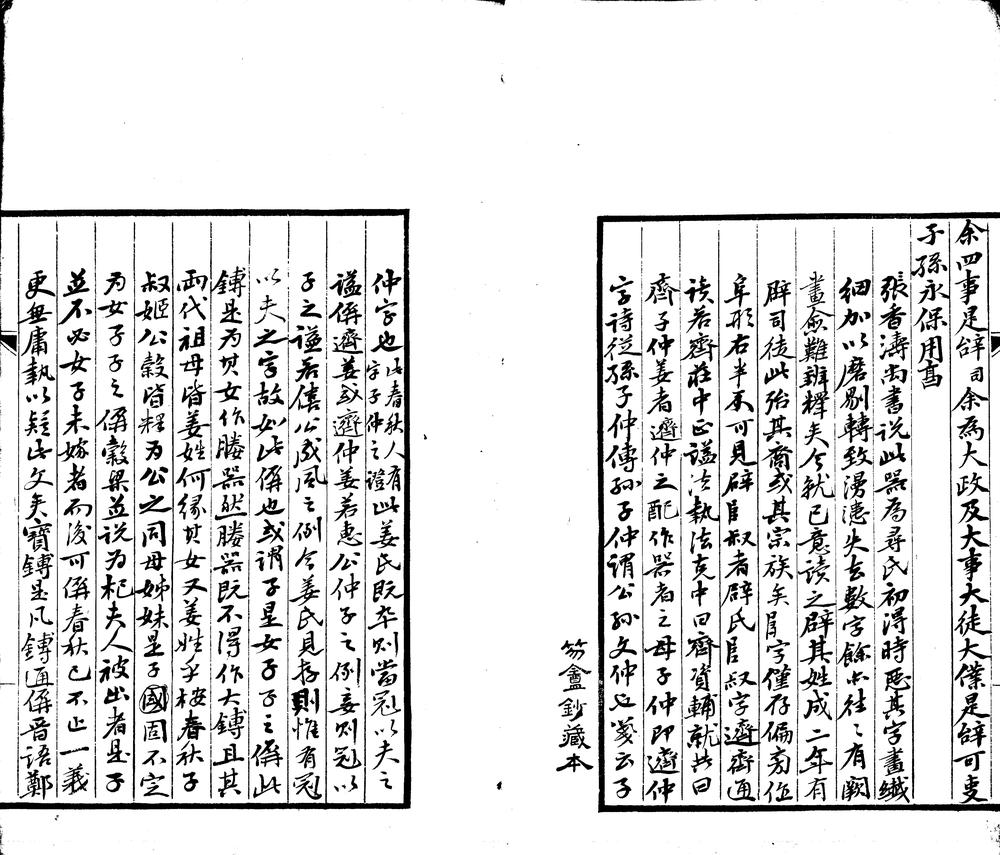 余四事是辝司余為大政及大事大徒大僕是辝可吏
子孫永保用亯
張香濤尚書說此器為尋氏初得時惡其字畫纖
細加以磨剔轉致湧漶失去數字餘亦往〻有闕
畫愈難辨釋矣今就已意讀之辟其姓成二年有
辟司徒此殆其裔或其宗族矣𦣞字僅存偏旁作
阜形右半不可見辟𦣞叔者辟氏𦣞叔字𨟊齊通
读若齊莊中正謚法執法克中曰齊資輔就共曰
齊子仲姜者𨟊仲之配作器者之母子仲即𨟊仲
字詩從孫子仲傳孫子仲謂公孫文仲也箋云子
仲字也此春秋人有字子仲之證此姜氏既卒則當冠以夫之
謚偁齊姜或齊仲姜若惠公仲子之例妾则冠以
子之謚若僖公成風之例今姜氏見存則惟有冠
以夫之字故如此偁也或謂子是女子子之偁此
鎛是为其女作媵器然媵器既不得作大鎛且其
两代祖母皆姜姓何缘其女又姜姓乎桉春秋子
叔姬公穀皆釋为公之同母姊妹是子國固不定
为女子子之偁穀梁並说为杞夫人被出者是子
並不必女子未嫁者而後可偁春秋已不止一義
更無庸執以疑此文矣寶鎛是凡鎛通偁晉语鄭
盦鈔藏本